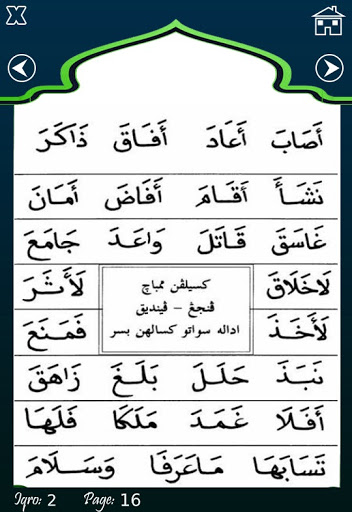 أَصَابَ أَعَادَ أَفَاقَ ذَاكَرَ
نَشَأَ أَقَامَ أَفَاضَ أَمَانَ
غَاسَقَ قَاتَلَ وَاعَدَ جَامَعَ
لَاخَلَاقَ لَأَثَرَ
كسيلڤن ممباچ
ڤنجڠ – ڤينديق
اداله سواتو كسالهن بسر
لَأَخَذَ فَمَنَعَ
نَبَذَ حَلَلَ بَلَغَ زَاهَقَ
أَفَلَا غَمَدَ مَلَكَا فَلَهَا
تَسَابَهَا مَاعَرَفَا وَسَلَامَ
Iqro: 2 Page: 16